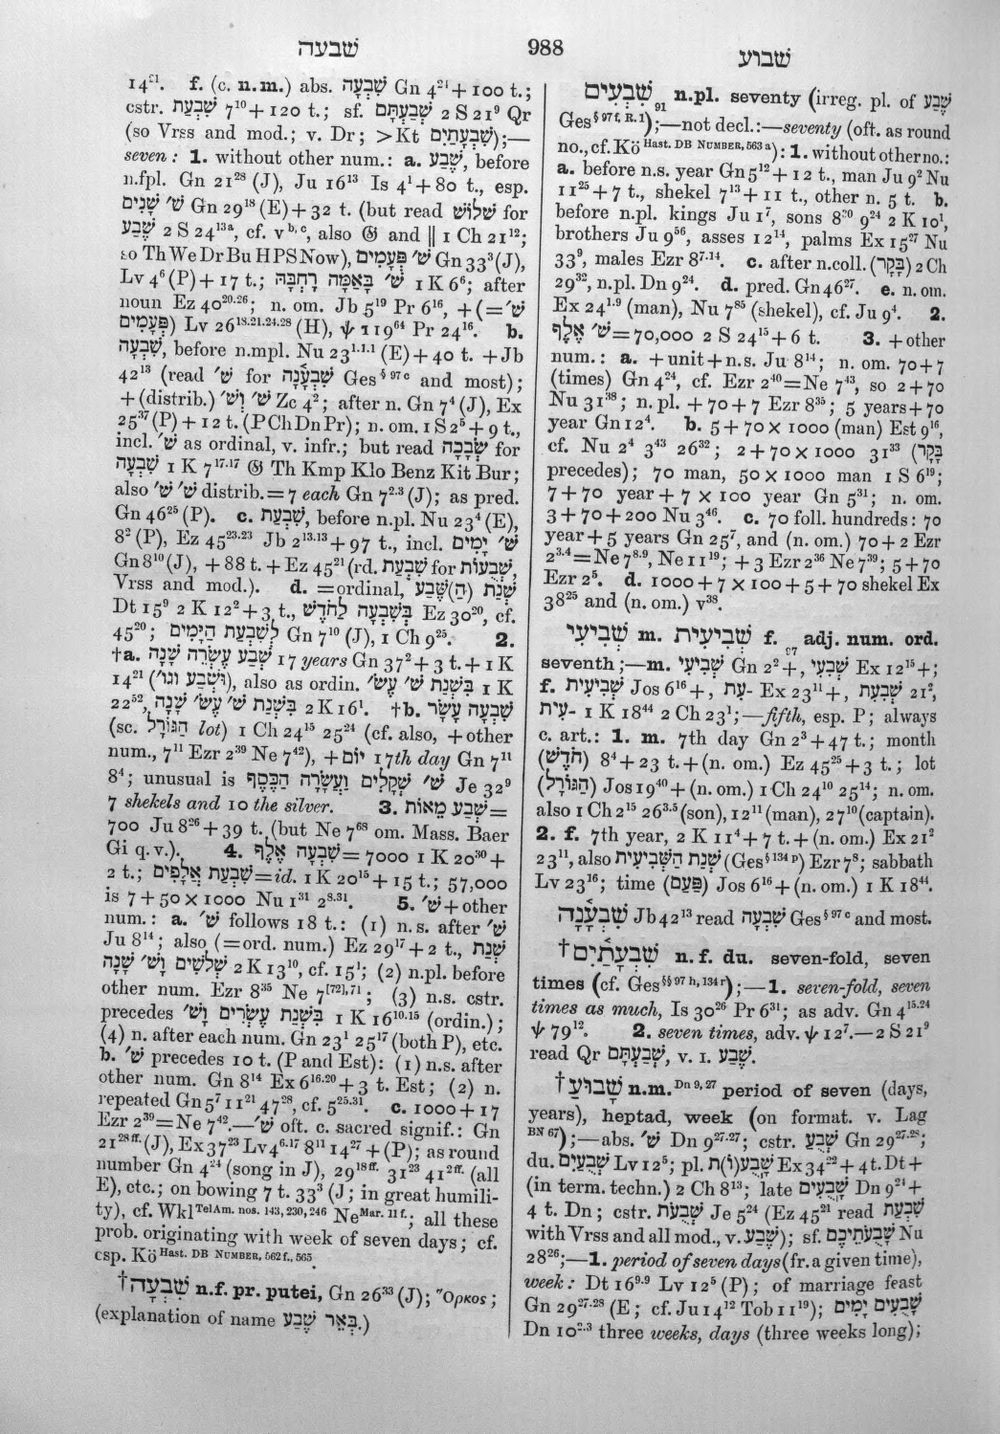 שבעה
988
שבוע
14²¹. f. (c. n.m.) abs. שִׁבְעָה Gn 4²⁴+100 t.;
cstr. שִׁבְעַת 7¹⁰+120 t.; sf. שְׁבַעְתָּם 2 S 21⁹ Qr
(so Vrss and mod.; v. Dr; >Kt שִׁבְעָתַיִם);—
seven: 1. without other num.: a. שֶׁבַע, before
n.fpl. Gn 21²⁸ (J), Ju 16¹³ Is 4¹+80 t., esp.
שׁ׳ שָׁנִים Gn 29¹⁸ (E)+32 t. (but read שָׁלוֹשׁ for
שֶׁבַע 2 S 24¹³ᵃ, cf. v ᵇ,ᶜ, also 𝔊 and ‖ 1 Ch 21¹²;
so Th We Dr Bu HPS Now), שׁ׳ פְּעָמִים Gn 33³ (J),
Lv 4⁶ (P)+17 t.; שׁ׳ בָּאַמָּה רָחְבָּהּ 1 K 6⁶; after
noun Ez 40²⁰·²⁶; n. om. Jb 5¹⁹ Pr 6¹⁶, +(=שׁ׳
פְּעָמִים) Lv 26¹⁸·²¹·²⁴·²⁸ (H), ψ 119⁶⁴ Pr 24¹⁶. b.
שִׁבְעָה, before n.mpl. Nu 23¹·¹·¹ (E)+40 t. +Jb
42¹³ (read שׁ׳ for שִׁבְעָנָה Ges§ 97 c and most);
+(distrib.) שׁ׳ וְשׁ׳ Zc 4²; after n. Gn 7⁴ (J), Ex
25³⁷ (P)+12 t. (P Ch Dn Pr); n. om. 1 S 2⁵+9 t.,
incl. שׁ׳ as ordinal, v. infr.; but read שְׂבָכָה for
שִׁבְעָה 1 K 7¹⁷·¹⁷ 𝔊 Th Kmp Klo Benz Kit Bur;
also שׁ׳ שׁ׳ distrib.=7 each Gn 7²·³ (J); as pred.
Gn 46²⁵ (P). c. שִׁבְעַת, before n.pl. Nu 23⁴ (E),
8² (P), Ez 45²³·²³ Jb 2¹³·¹³+97 t., incl. שׁ׳ יָמִים
Gn 8¹⁰ (J), +88 t. +Ez 45²¹ (rd. שִׁבְעַת for שְׁבֻעוֹת,
Vrss and mod.). d. =ordinal, שְׁנַת (הַ)שֶּׁבַע
Dt 15⁹ 2 K 12²+3 t., בְּשִׁבְעָה לַחֹדֶשׁ Ez 30²⁰, cf.
45²⁰; לְשִׁבְעַת הַיָּמִים Gn 7¹⁰ (J), 1 Ch 9²⁵. 2.
†a. שֶׁבַע עֶשְׂרֵה שָׁנָה 17 years Gn 37²+3 t.+1 K
14²¹ (וּשְׁבַע וגו׳), also as ordin. בִּשְׁנַת שׁ׳ עֶשׂ׳ 1 K
22⁵², בִּשְׁנַת שׁ׳ עֶשׂ׳ שָׁנָה 2 K 16¹. †b. שִׁבְעָה עָשָׂר
(sc. הַגּוֹרָל lot) 1 Ch 24¹⁵ 25²⁴ (cf. also, +other
num., 7¹¹ Ezr 2³⁹ Ne 7⁴²), +יוֹם 17th day Gn 7¹¹
8⁴; unusual is שׁ׳ שְׁקָלִים וַעֲשָׂרָה הַכֶּסֶף Je 32⁹
7 shekels and 10 the silver. 3. שְׁבַע מֵאוֹת=
700 Ju 8²⁶+39 t. (but Ne 7⁶⁸ om. Mass. Baer
Gi q.v.). 4. שִׁבְעָה אֶלֶף=7000 1 K 20³⁰+
2 t.; שִׁבְעַת אֲלָפִים=id. 1 K 20¹⁵+15 t.; 57,000
is 7+50×1000 Nu 1³¹ 2⁸·³¹. 5. שׁ׳+other
num.: a. שׁ׳ follows 18 t.: (1) n.s. after שׁ׳
Ju 8¹⁴; also (=ord. num.) Ez 29¹⁷+2 t., שְׁנַת
שְׁלֹשִׁים וָשׁ׳ שָׁנָה 2 K 13¹⁰, cf. 15¹; (2) n.pl. before
other num. Ezr 8³⁵ Ne 7[⁷²]·⁷¹; (3) n.s. cstr.
precedes בִּשְׁנַת עֶשְׂרִים וָשׁ׳ 1 K 16¹⁰·¹⁵ (ordin.);
(4) n. after each num. Gn 23¹ 25¹⁷ (both P), etc.
b. שׁ׳ precedes 10 t. (P and Est): (1) n.s. after
other num. Gn 8¹⁴ Ex 6¹⁶·²⁰+3 t. Est; (2) n.
repeated Gn 5⁷ 11²¹ 47²⁸, cf. 5²⁵·³¹. c. 1000+17
Ezr 2³⁹=Ne 7⁴².—שׁ׳ oft. c. sacred signif.: Gn
21²⁸ ᶠᶠ·(J), Ex 37²³ Lv 4⁶·¹⁷ 8¹¹ 14²⁷+(P); as round
number Gn 4²⁴ (song in J), 29¹⁸ ᶠᶠ· 31²³ 41² ᶠᶠ· (all
E), etc.; on bowing 7 t. 33³ (J; in great humili-
ty), cf. Wkl TelAm. nos. 143, 230, 246 Ne Mar. 11 f.; all these
prob. originating with week of seven days; cf.
esp. Kö Hast. DB NUMBER, 562 f., 565.
†שִׁבְעָה n.f. pr. putei, Gn 26³³ (J); Ὅρκος;
(explanation of name בְּאֵר שֶׁבַע.)
שִׁבְעִים 91 n.pl. seventy (irreg. pl. of שֶׁבַע
Ges§ 97 f, R. 1);—not decl.:—seventy (oft. as round
no., cf. Kö Hast. DB NUMBER, 563 a): 1. without other no.:
a. before n.s. year Gn 5¹²+12 t., man Ju 9² Nu
11²⁵+7 t., shekel 7¹³+11 t., other n. 5 t. b.
before n.pl. kings Ju 1⁷, sons 8³⁰ 9²⁴ 2 K 10¹,
brothers Ju 9⁵⁶, asses 12¹⁴, palms Ex 15²⁷ Nu
33⁹, males Ezr 8⁷·¹⁴. c. after n.coll. (בָּקָר) 2 Ch
29³², n.pl. Dn 9²⁴. d. pred. Gn 46²⁷. e. n. om.
Ex 24¹·⁹ (man), Nu 7⁸⁵ (shekel), cf. Ju 9⁴. 2.
שׁ׳ אֶלֶף=70,000 2 S 24¹⁵+6 t. 3. +other
num.: a. +unit+n.s. Ju 8¹⁴; n. om. 70+7
(times) Gn 4²⁴, cf. Ezr 2⁴⁰=Ne 7⁴³, so 2+70
Nu 31³⁸; n.pl. +70+7 Ezr 8³⁵; 5 years+70
year Gn 12⁴. b. 5+70×1000 (man) Est 9¹⁶,
cf. Nu 2⁴ 3⁴³ 26³²; 2+70×1000 31³³ (בָּקָר
precedes); 70 man, 50×1000 man 1 S 6¹⁹;
7+70 year+7×100 year Gn 5³¹; n. om.
3+70+200 Nu 3⁴⁶. c. 70 foll. hundreds: 70
year+5 years Gn 25⁷, and (n. om.) 70+2 Ezr
2³·⁴=Ne 7⁸·⁹, Ne 11¹⁹; +3 Ezr 2³⁶ Ne 7³⁹; 5+70
Ezr 2⁵. d. 1000+7×100+5+70 shekel Ex
38²⁵ and (n. om.) v³⁸.
שְׁבִיעִי m. שְׁבִיעִית f. 97 adj. num. ord.
seventh;—m. שְׁבִיעִי Gn 2²+, שְׁבִעִי Ex 12¹⁵+;
f. שְׁבִיעִית Jos 6¹⁶+, ־עִת Ex 23¹¹+, שְׁבִעִת 21²,
־עִית 1 K 18⁴⁴ 2 Ch 23¹;—fifth, esp. P; always
c. art.: 1. m. 7th day Gn 2³+47 t.; month
(חֹדֶשׁ) 8⁴+23 t.+(n. om.) Ez 45²⁵+3 t.; lot
(הַגּוֹרָל) Jos 19⁴⁰+(n. om.) 1 Ch 24¹⁰ 25¹⁴; n. om.
also 1 Ch 2¹⁵ 26³·⁵ (son), 12¹¹ (man), 27¹⁰ (captain).
2. f. 7th year, 2 K 11⁴+7 t.+(n. om.) Ex 21²
23¹¹, also שְׁנַת הַשְּׁבִיעִית (Ges§ 134 p) Ezr 7⁸; sabbath
Lv 23¹⁶; time (פַּעַם) Jos 6¹⁶+(n. om.) 1 K 18⁴⁴.
שִׁבְעָנָה Jb 42¹³ read שִׁבְעָה Ges§ 97 c and most.
†שִׁבְעָתַיִם n. f. du. seven-fold, seven
times (cf. Ges§§ 97 h, 134 r);—1. seven-fold, seven
times as much, Is 30²⁶ Pr 6³¹; as adv. Gn 4¹⁵·²⁴
ψ 79¹². 2. seven times, adv. ψ 12⁷.—2 S 21⁹
read Qr שְׁבַעְתָּם, v. I. שֶׁבַע.
†שָׁבוּעַ n.m. Dn 9, 27 period of seven (days,
years), heptad, week (on format. v. Lag
BN 67);—abs. שׁ׳ Dn 9²⁷·²⁷; cstr. שְׁבֻעַ Gn 29²⁷·²⁸;
du. שְׁבֻעַיִם Lv 12⁵; pl. שָׁבֻע(וֹ)ת Ex 34²²+4 t. Dt+
(in term. techn.) 2 Ch 8¹³; late שָׁבֻעִים Dn 9²⁴+
4 t. Dn; cstr. שְׁבֻעֹת Je 5²⁴ (Ez 45²¹ read שִׁבְעַת
with Vrss and all mod., v. שֶׁבַע); sf. שָׁבֻעֹתֵיכֶם Nu
28²⁶;—1. period of seven days (fr. a given time),
week: Dt 16⁹·⁹ Lv 12⁵ (P); of marriage feast
Gn 29²⁷·²⁸ (E; cf. Ju 14¹² Tob 11¹⁹); שָׁבֻעִים יָמִים
Dn 10²·³ three weeks, days (three weeks long);